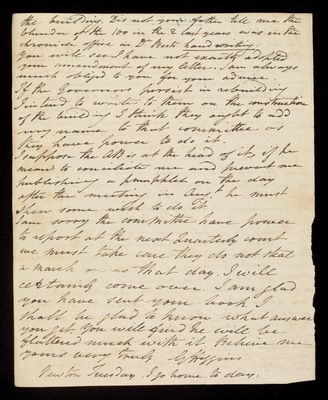 the building. Did not your father tell me the
blunder of the 100 in the 2 last years was in the
chronicle office in Dr Bests handwriting
You will see I have not exactly adopted
your amendment of my letter. I am always
much obliged to you for your advice.
If the Governors persist in rebuilding
I intend to write to them on the construction
of the building I think they ought to add
my name to that committee as
they have power to do it.
I suppose the AB is at the head of it, if he
means to conciliate me and prevent me
publishing a pamphlet on the day
after the meeting in Augt. he must
shew some wish to do it
I am sorry the committee have power
to report at the next Quarterly court
we must take care they do not steal
a march on us that day. I will
certainly come over. I am glad
you have sent your book I
shall be glad to know what answer
you get. You will find he will be
flattered much with it. Believe me
yours very truly G Higgins
Newton Tuesday. I go home to day.